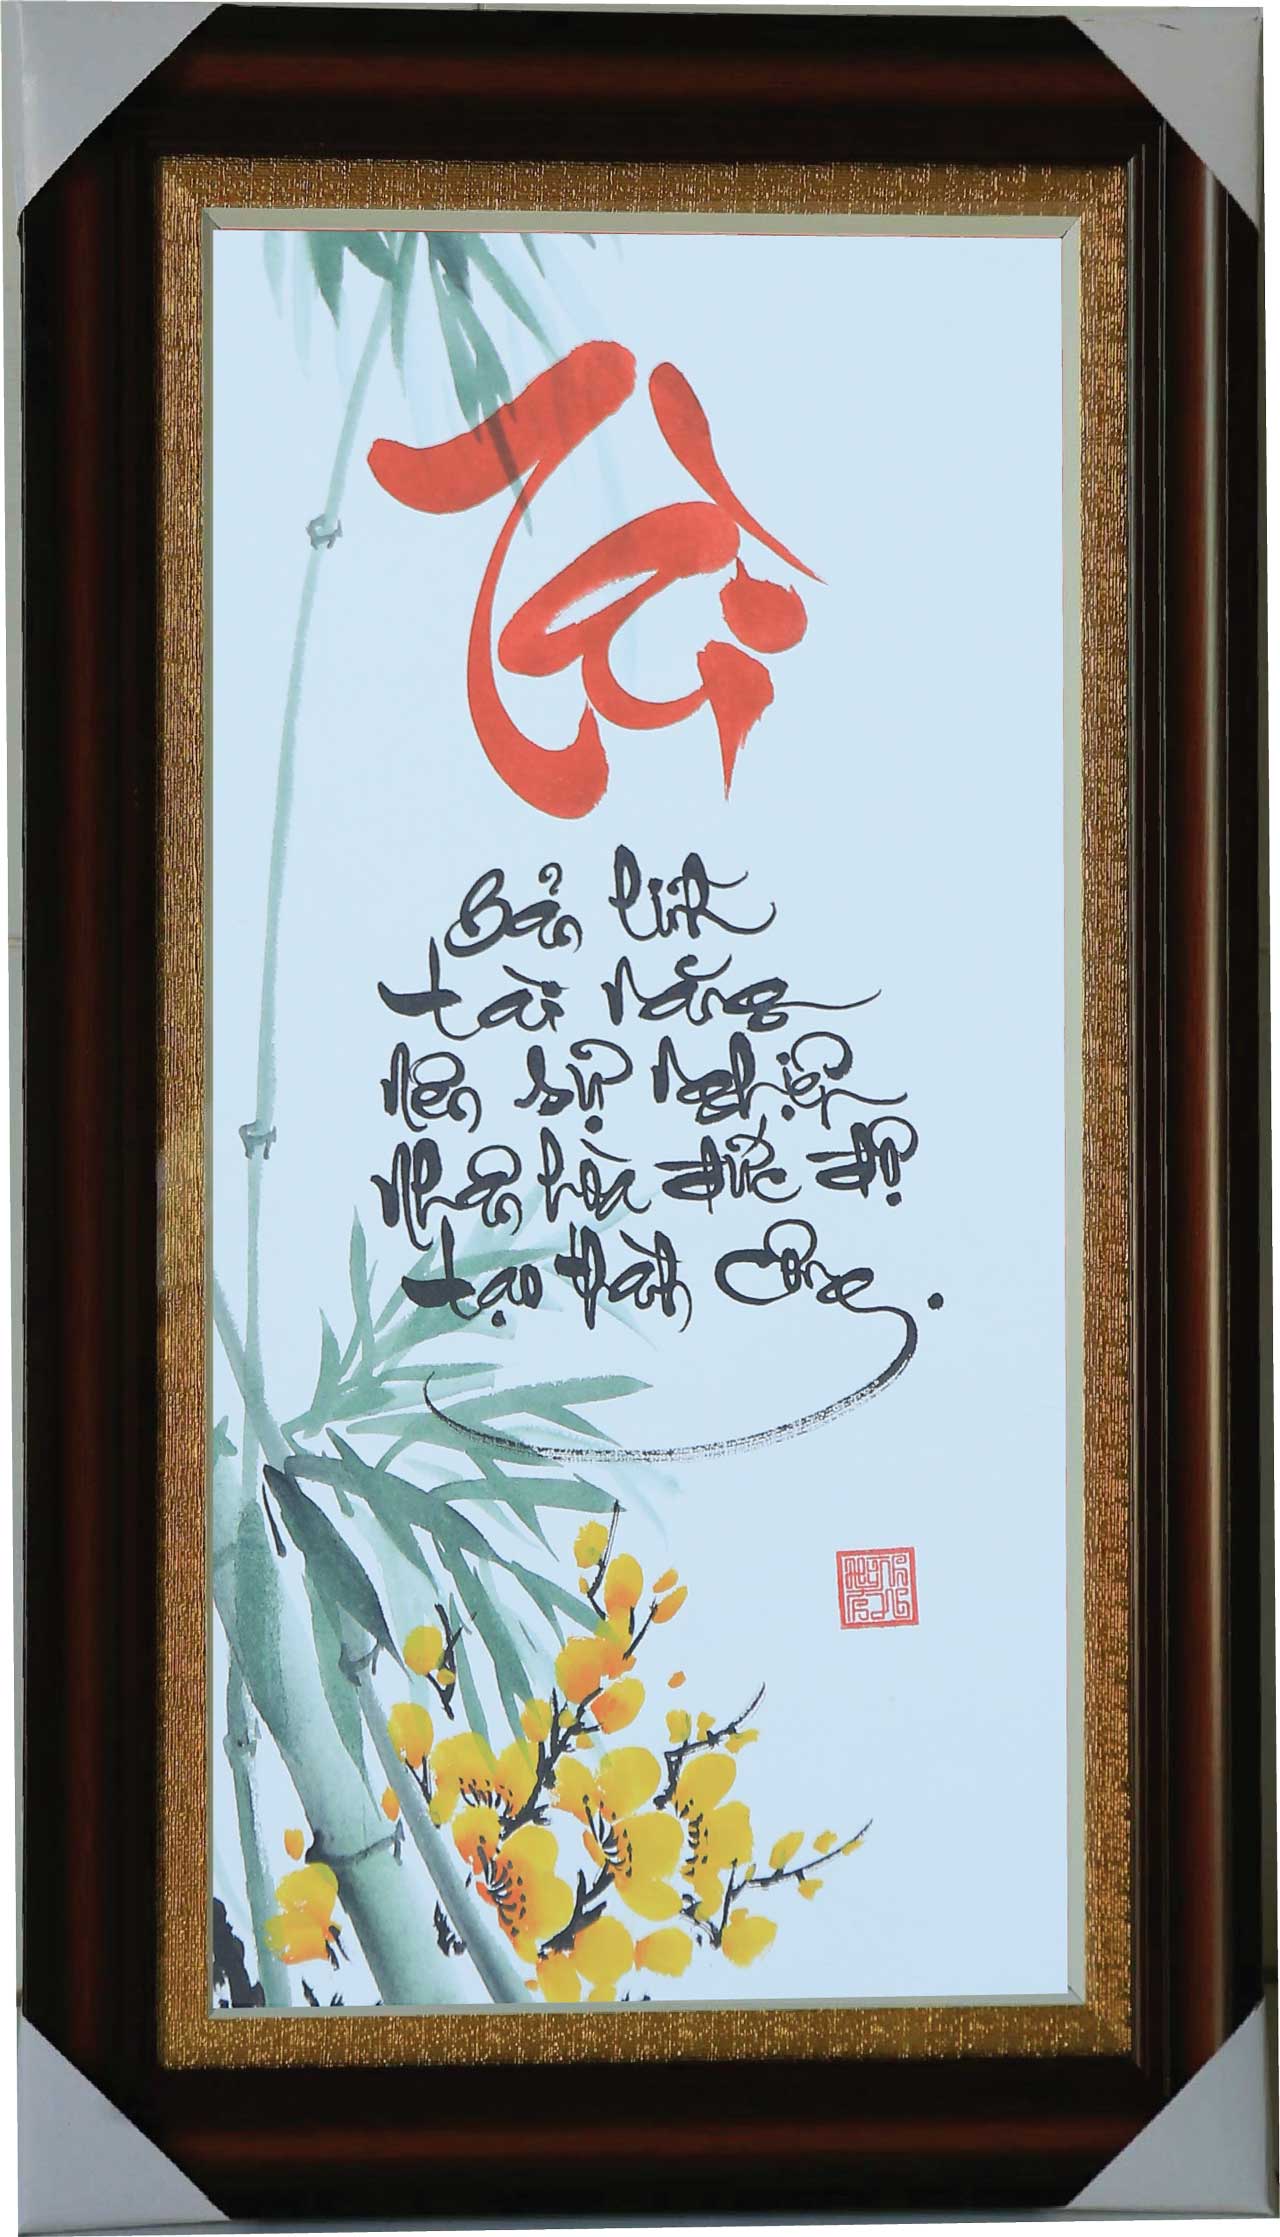 Tài
Bản lĩnh
tài năng
nên sự nghiệp
Nhân hòa đức độ
tạo thành công.